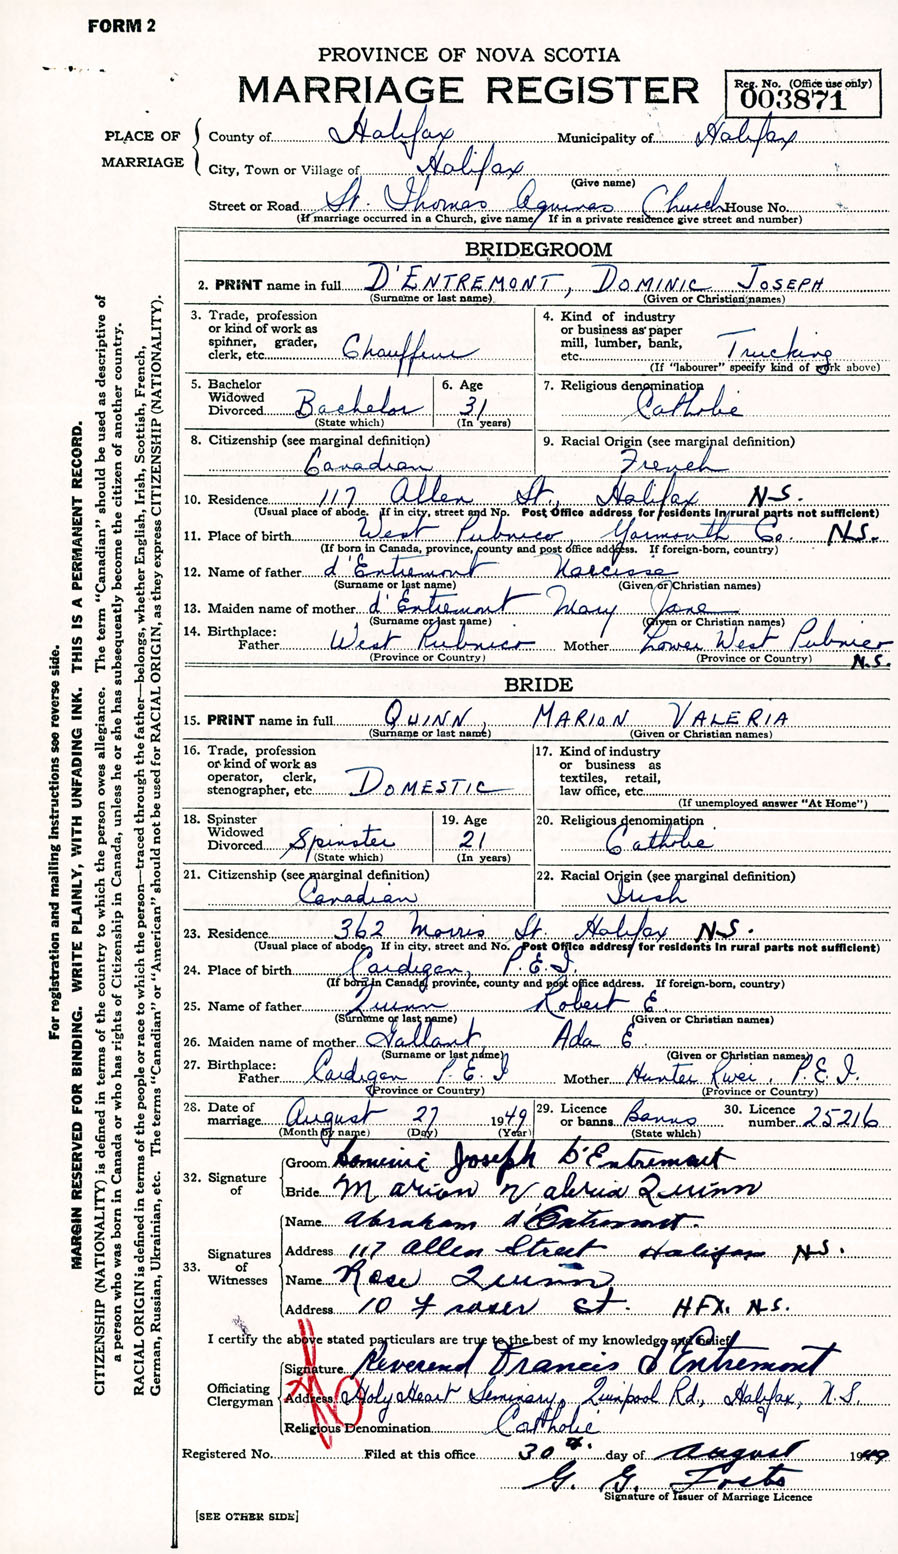 FORM 2
PROVINCE OF NOVA SCOTIA
MARRIAGE REGISTER
Reg. No. (Office use only)
003871
PLACE OF MARRIAGE
County of Halifax Municipality of Halifax
City, Town or Village of Halifax
(Give name)
Street or Road St. Thomas Aquinas Church House No.
(If marriage occurred in a Church, give name. If in a private residence give street and number)
BRIDEGROOM
2. PRINT name in full D'ENTREMONT, DOMINIC JOSEPH
(Surname or last name) (Given or Christian names)
3. Trade, profession or kind of work as spinner, grader, clerk, etc. Chauffeur
4. Kind of industry or business as paper mill, lumber, bank, etc. Trucking
(If "labourer" specify kind of work above)
5. Bachelor Widowed Divorced Bachelor
(State which)
6. Age 31
(In years)
7. Religious denomination Catholic
8. Citizenship (see marginal definition)
Canadian
9. Racial Origin (see marginal definition)
French
10. Residence 117 Allen St., Halifax N.S.
(Usual place of abode. If in city, street and No. Post Office address for residents in rural parts not sufficient)
11. Place of birth West Pubnico, Yarmouth Co. N.S.
(If born in Canada, province, county and post office address. If foreign-born, country)
12. Name of father d'Entremont Narcisse
(Surname or last name) (Given or Christian names)
13. Maiden name of mother d'Entremont Mary Jane
(Surname or last name) (Given or Christian names)
14. Birthplace:
Father West Pubnico Mother Lower West Pubnico
(Province or Country) (Province or Country) N.S.
BRIDE
15. PRINT name in full QUINN, MARION VALERIA
(Surname or last name) (Given or Christian names)
16. Trade, profession or kind of work as operator, clerk, stenographer, etc. DOMESTIC
17. Kind of industry or business as textiles, retail, law office, etc.
(If unemployed answer "At Home")
18. Spinster Widowed Divorced Spinster
(State which)
19. Age 21
(In years)
20. Religious denomination Catholic
21. Citizenship (see marginal definition)
Canadian
22. Racial Origin (see marginal definition)
Irish
23. Residence 362 Morris St. Halifax N.S.
(Usual place of abode. If in city, street and No. Post Office address for residents in rural parts not sufficient)
24. Place of birth Cardigan, P.E.I.
(If born in Canada, province, county and post office address. If foreign-born, country)
25. Name of father Quinn Robert E.
(Surname or last name) (Given or Christian names)
26. Maiden name of mother Gallant Ada E.
(Surname or last name) (Given or Christian names)
27. Birthplace:
Father Cardigan P.E.I Mother Hunter River, P.E.I.
(Province or Country) (Province or Country)
28. Date of marriage August 27 1949
(Month by name) (Day) (Year)
29. Licence or banns Banns
(State which)
30. Licence number 25216
32. Signature of
Groom Dominic Joseph D'Entremont
Bride Marion Valeria Quinn
33. Signatures of Witnesses
Name Abraham d'Entremont.
Address 117 Allen Street Halifax N.S.
Name Rose Quinn
Address 10 Fraser St. HFX. N.S.
I certify the above stated particulars are true to the best of my knowledge and belief.
Officiating Clergyman
Signature Reverend Francis d'Entremont
Address Holy Heart Seminary, Quinpool Rd., Halifax, N.S.
Religious Denomination Catholic
Registered No. Filed at this office 30th. day of August 1949
G. G.
Signature of Issuer of Marriage Licence
[SEE OTHER SIDE]
For registration and mailing instructions see reverse side.
MARGIN RESERVED FOR BINDING. WRITE PLAINLY, WITH UNFADING INK. THIS IS A PERMANENT RECORD.
CITIZENSHIP (NATIONALITY) is defined in terms of the country to which the person owes allegiance. The term "Canadian" should be used as descriptive of
a person who was born in Canada or who has rights of Citizenship in Canada, unless he or she has subsequently become the citizen of another country.
RACIAL ORIGIN is defined in terms of the people or race to which the person—traced through the father—belongs, whether English, Irish, Scottish, French,
German, Russian, Ukrainian, etc. The terms "Canadian" or "American" should not be used for RACIAL ORIGIN, as they express CITIZENSHIP (NATIONALITY).